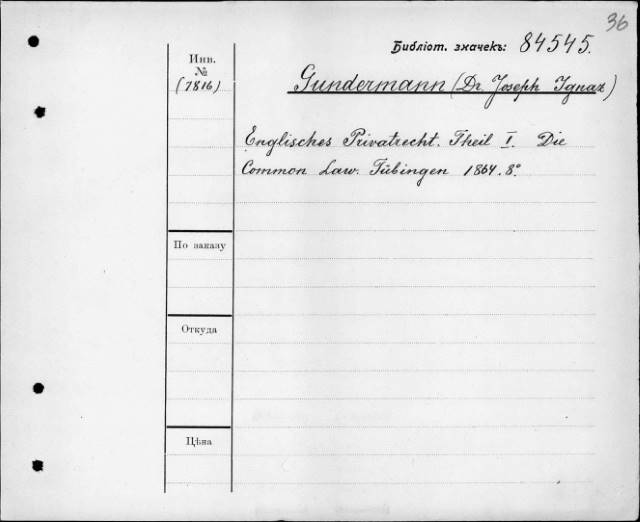 36
Библіот. значекъ: 84545.
Инв.
№
(7816)
Gundermann (Dr. Joseph Ignaz)
Englisches Privatrecht. Theil I. Die
Common Law. Tübingen 1864. 8°
По заказу
Откуда
Цѣна